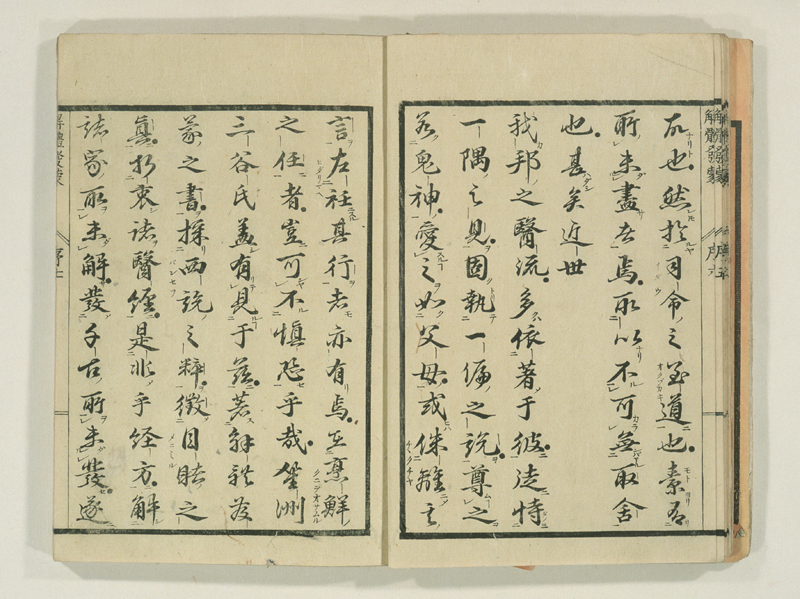 故也然於司命之至道也素有
所未盡者焉所以不可無取舍
也甚矣近世
我邦之醫流多依著于彼徒恃
一隅之見固執一偏之說尊之
若鬼神愛之如父母或侏離其
言左衽其行者亦有焉烹鮮
之任者豈可不慎恐乎哉
三谷氏蓋有見于茲著解體發
蒙之書採西說之粹徵目睹之
真折衷諸醫經是非乎経方解
諸家所未解發千古所未發遂
解體發蒙